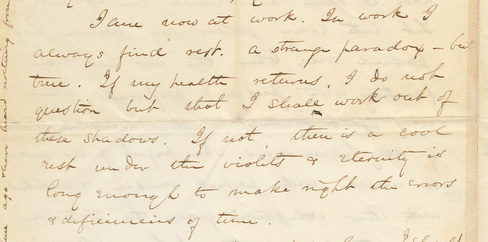 I am now at work. In work I
always find rest. a strange paradox – but
true. If my health returns, I do not
question but that I shall work out of
these shadows. If not, there is a cool
rest under the violets & eternity is
long enough to make right the errors
& deficiencies of time.
ago then heard nothing from